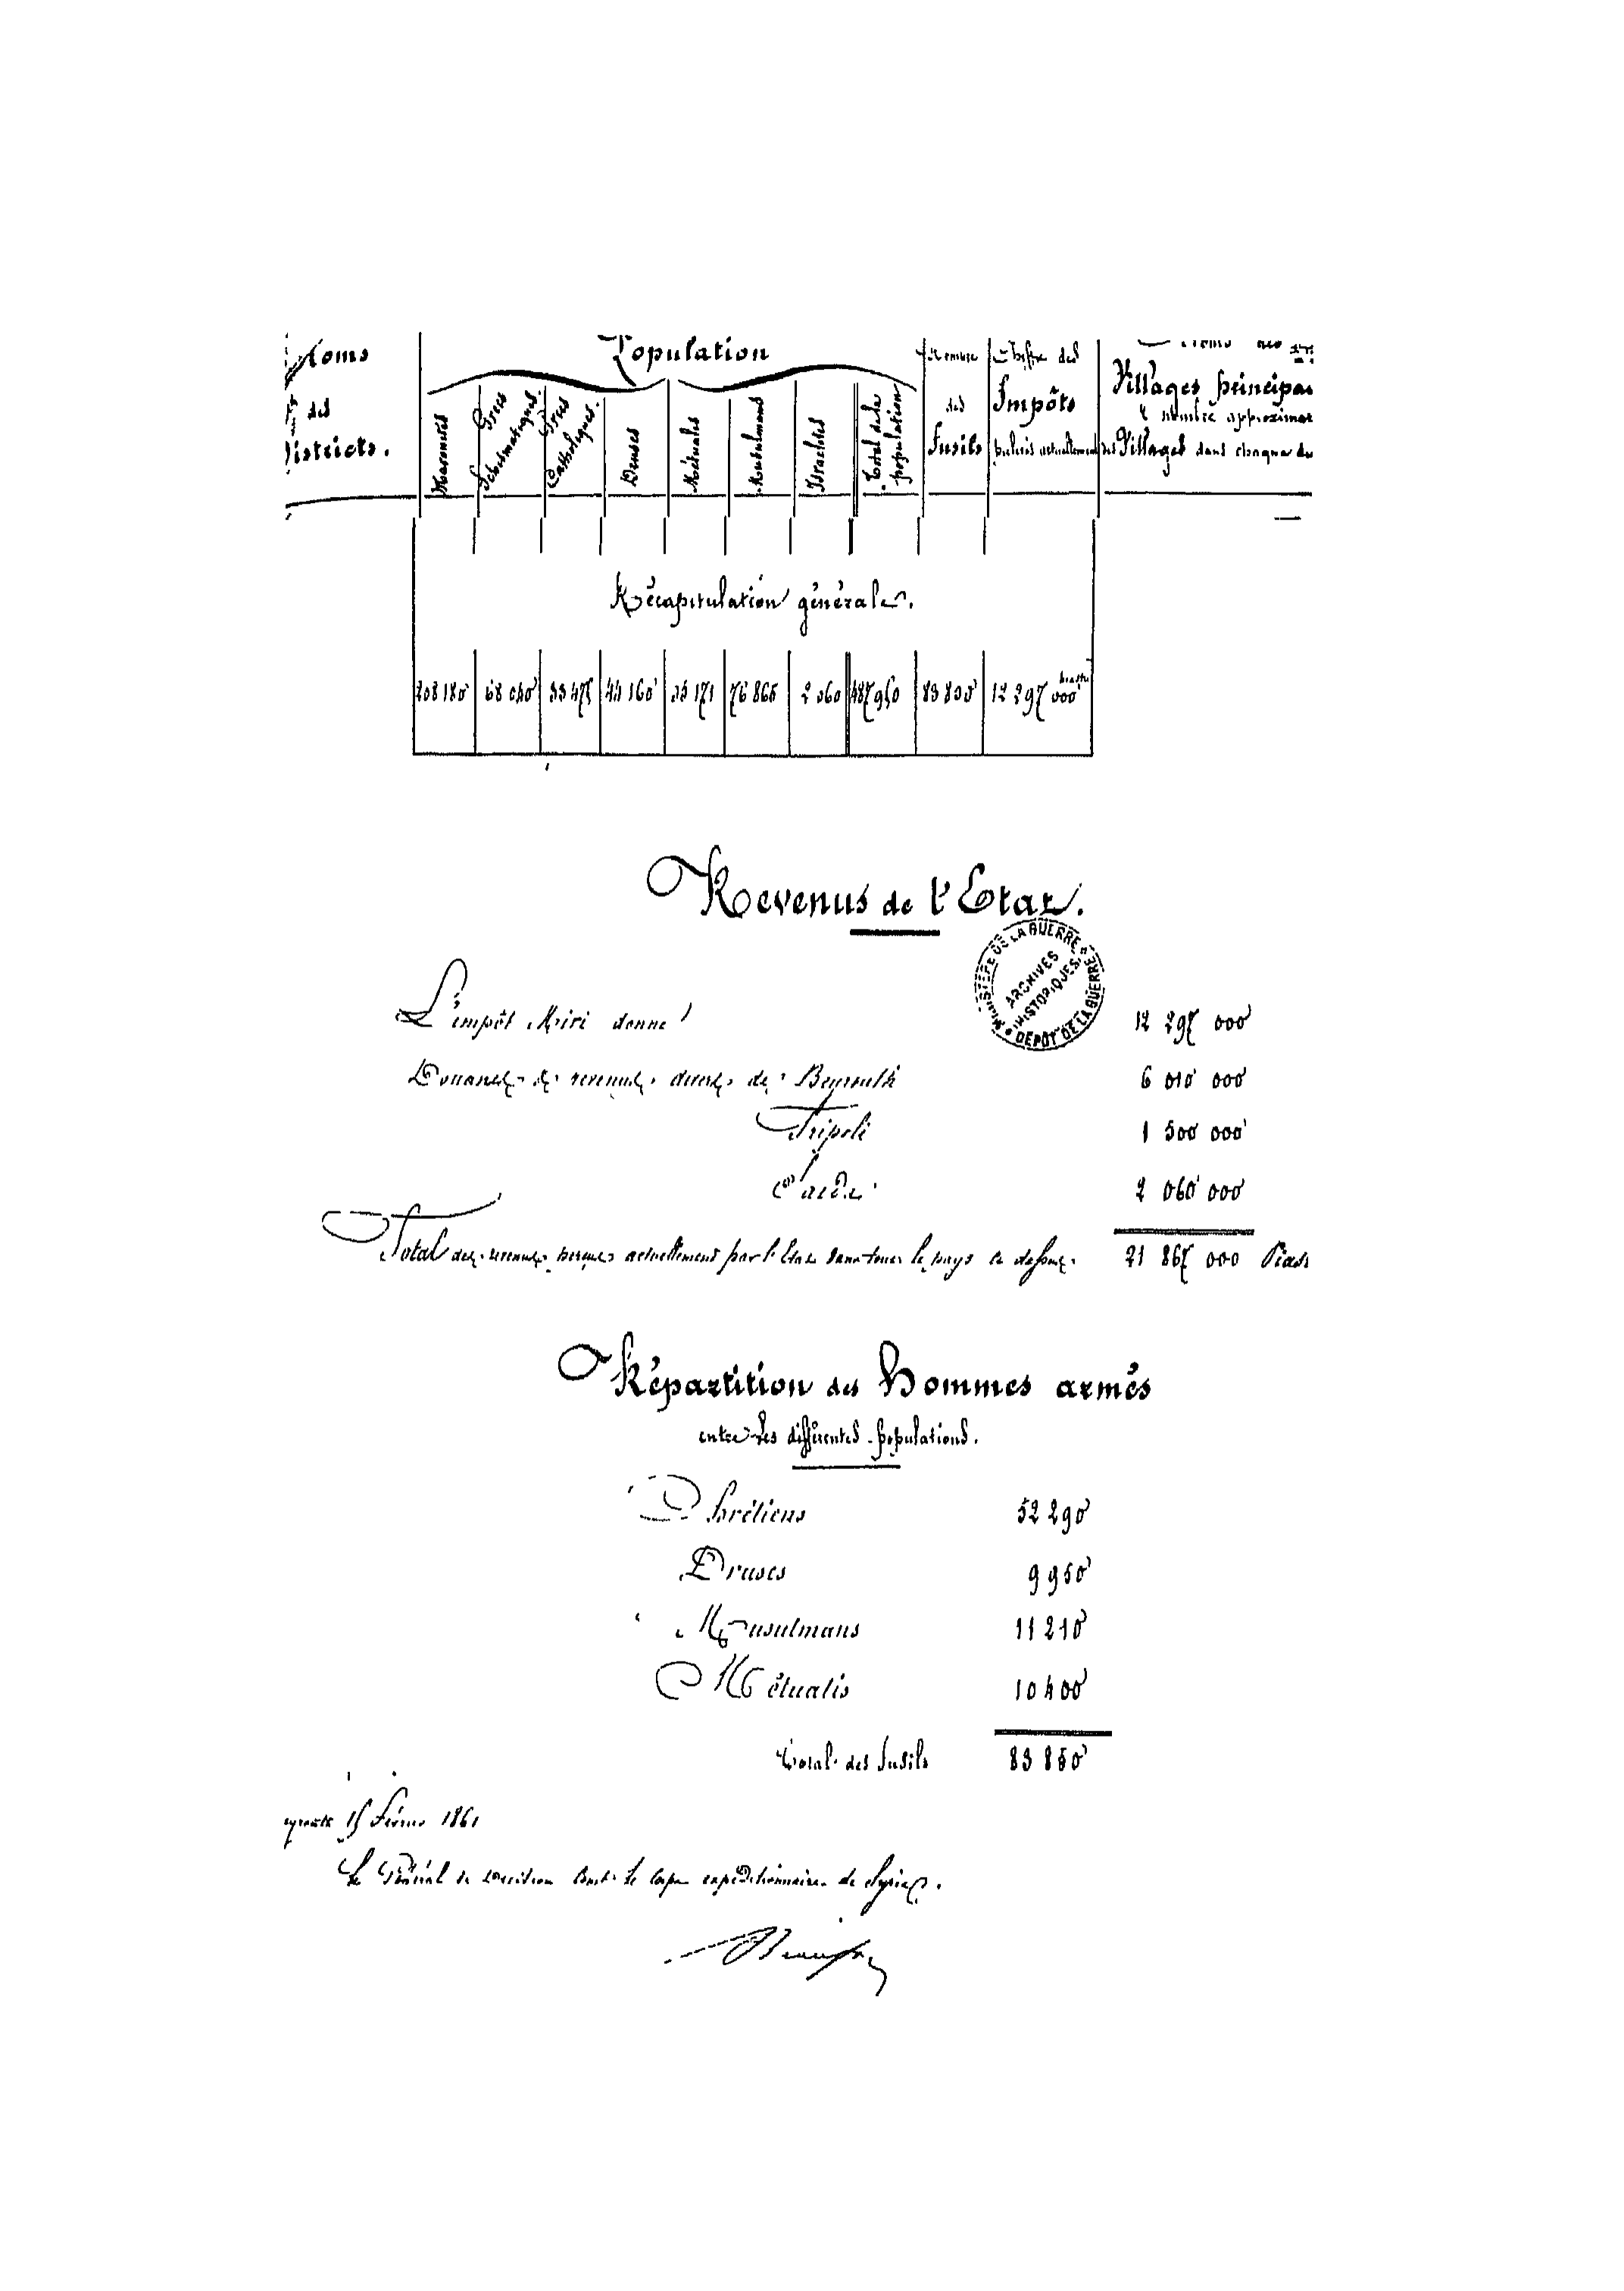 Noms
des
Districts.
Population
Maronites
Grecs Schismatiques.
Grecs Catholiques.
Druses
Métualis
Musulmans
Israelites
Total de la population
Nombre des Fusils
Chiffre des Impôts perçus actuellement
Villages principaux
& nombre approximat
des Villages dans chaque dis
Récapitulation générale.
208 180 68 040 33 475 44 160 55 171 76 865 2 060 487 950 83 800 12 297 000 piastres
Revenus de l'Etat.
MINISTERE DE LA GUERRE
ARCHIVES HISTORIQUES
DEPÔT DE LA GUERRE
L'impôt Miri donne 12 297 000
Douanes & revenus divers de Beyrouth 6 010 000
Tripoli 1 500 000
Saida 2 060 000
Total des revenus perçus actuellement par l'Etat dans tout le pays ci dessus. 21 867 000 Pias
Répartition des Hommes armés
entre les différentes populations.
Chrétiens 52 290
Druses 9 950
Musulmans 11 210
Métualis 10 400
Total des fusils 83 850
eyrouth 15 Février 1861
Le Général de Division Comt. le Corps expéditionnaire de Syrie.
Beaufort